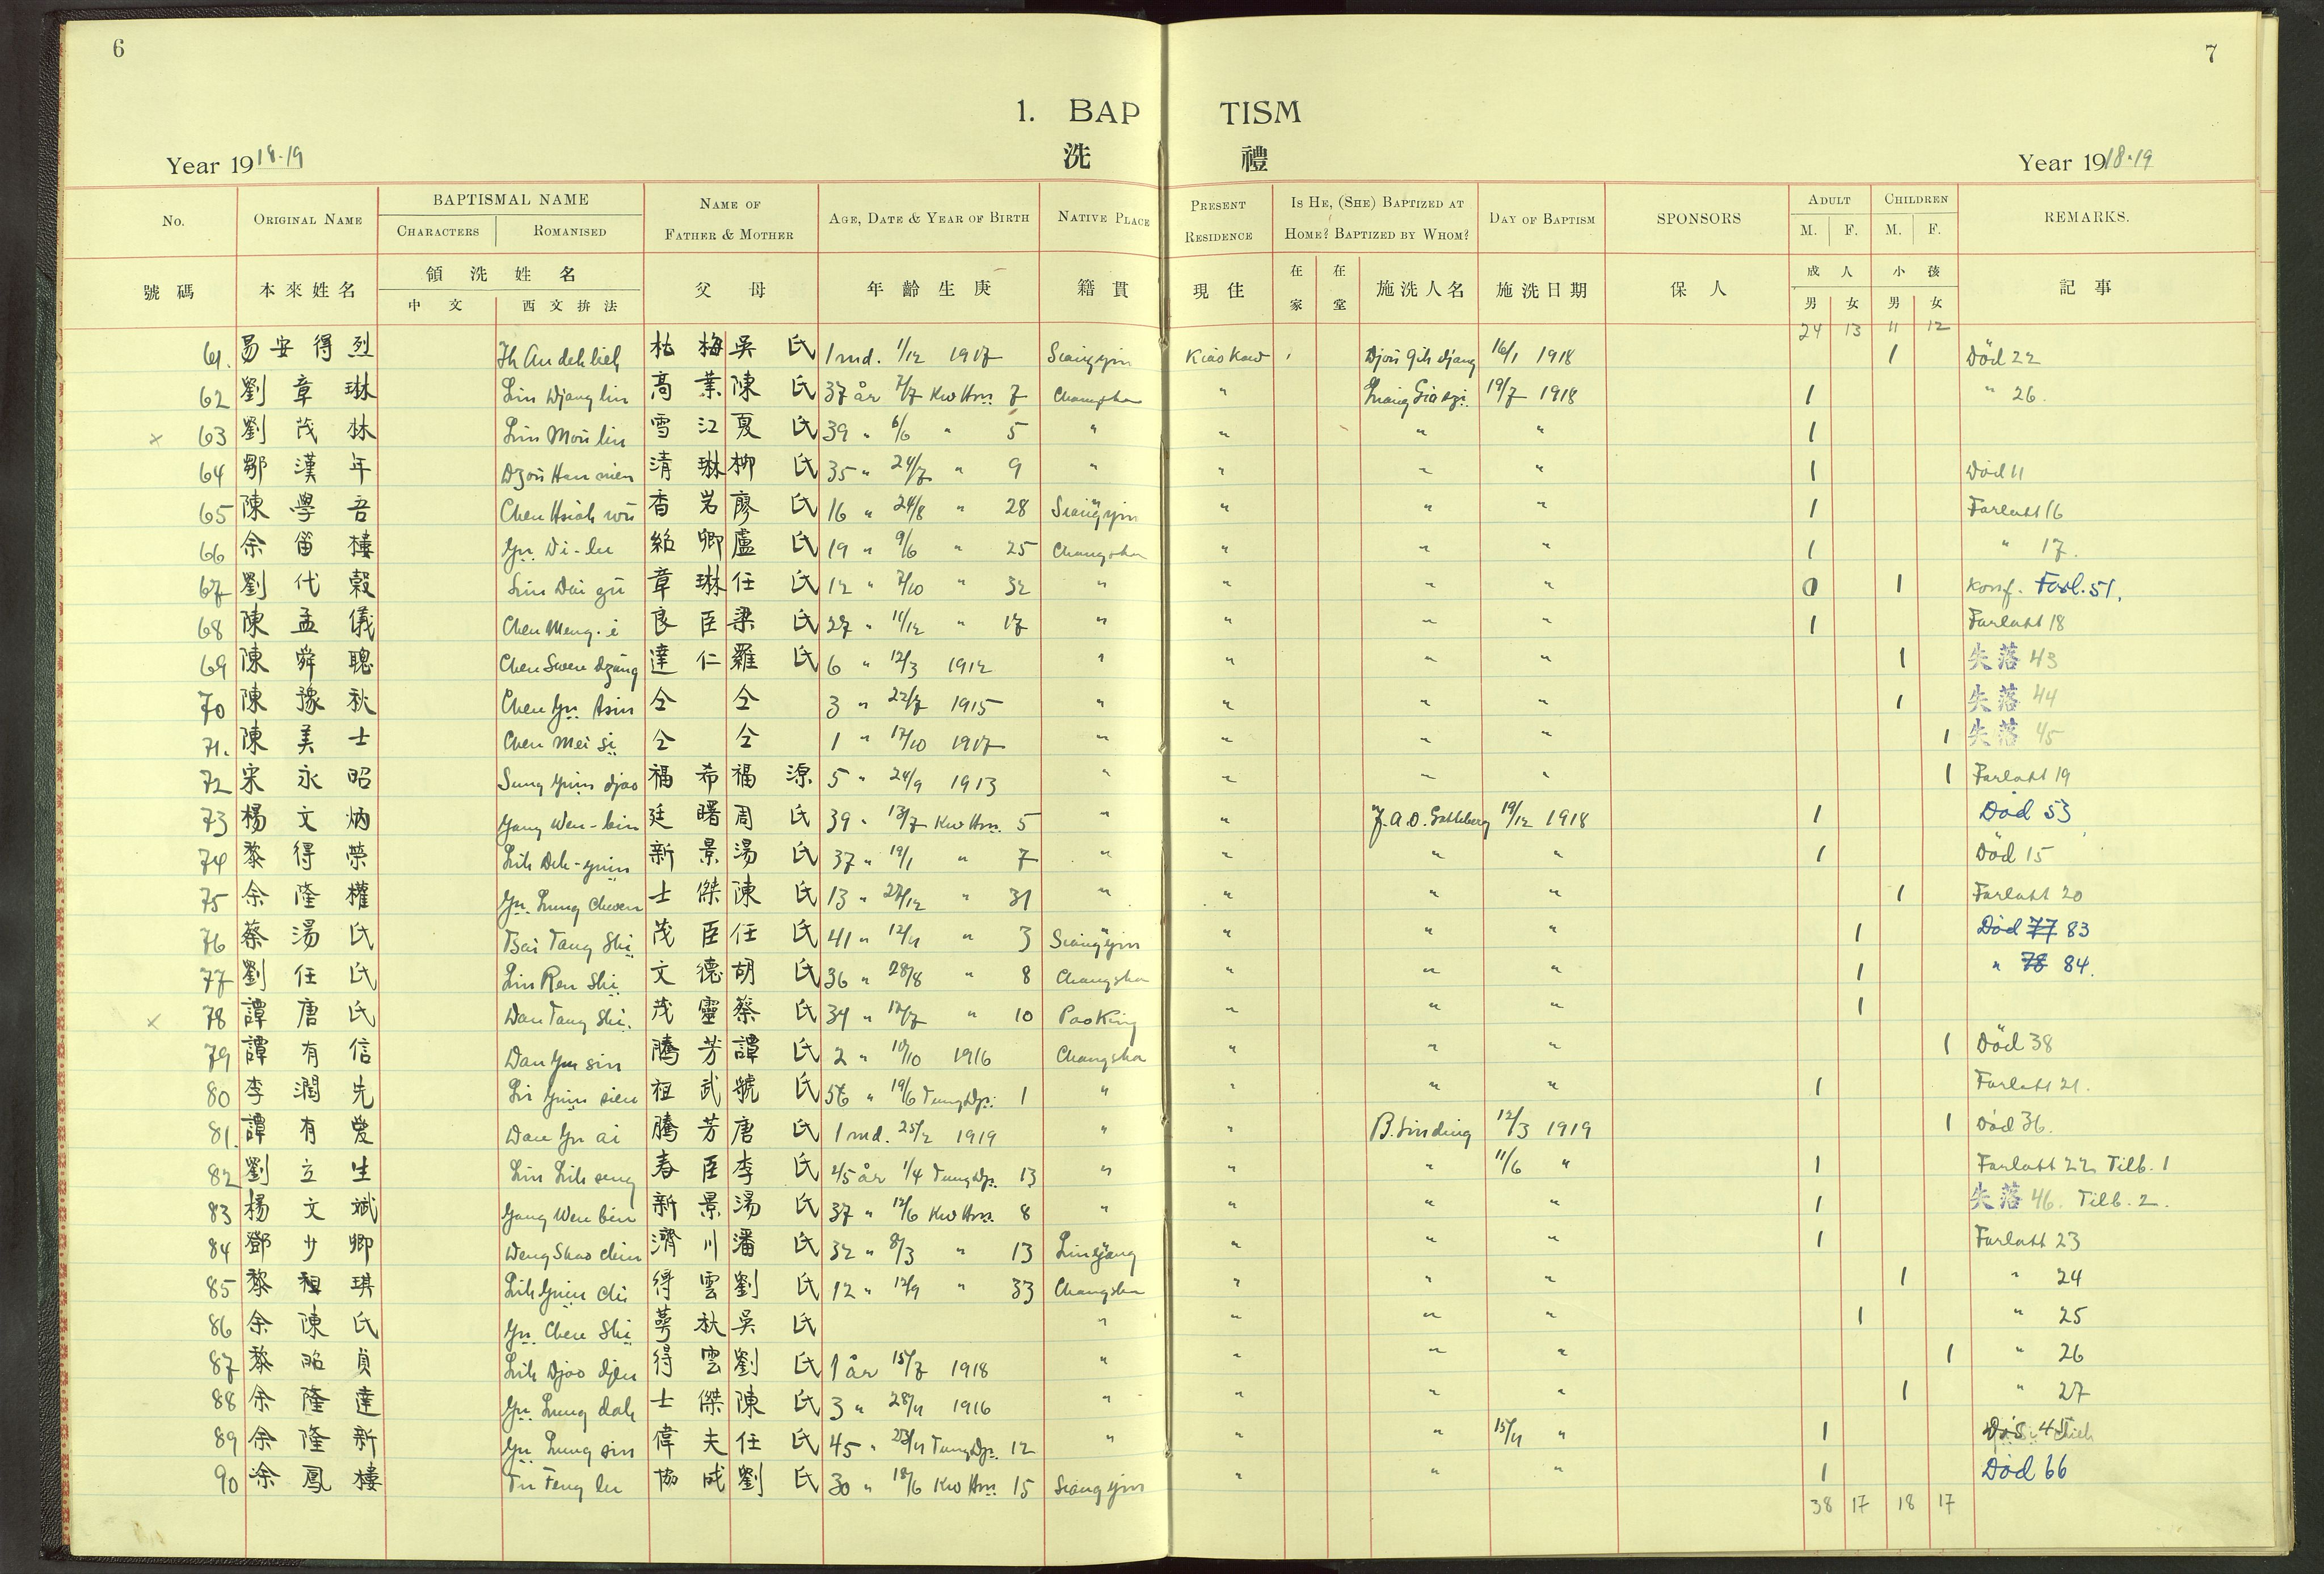 6
7
1. BAP TISM
洗 禮
Year 1918-19
Year 1918-19
No. ORIGINAL NAME BAPTISMAL NAME CHARACTERS ROMANISED NAME OF FATHER & MOTHER AGE, DATE & YEAR OF BIRTH NATIVE PLACE PRESENT RESIDENCE IS HE, (SHE) BAPTIZED AT HOME? BAPTIZED BY WHOM? DAY OF BAPTISM SPONSORS ADULT M. F. CHILDREN M. F. REMARKS.
號碼 本來姓名 領洗姓名 中文 西文拚法 父母 年齡生庚 籍貫 現住 在家 在堂 施洗人名 施洗日期 保人 成人 男 女 小孩 男 女 記事
24 13 11 12
61. 易安得烈 Ih An deh lieh 梅吳氏 1 md. 1/12 1917 Siangyin Kiao Kow 16/1 1918 1 Död 22
62 劉章琳 Liu Djang lin 高業陳氏 37 år 7/7 Kw Hsü 7 Changsha " 19/7 1918 1 " 26
x 63 劉茂林 Liu Mou lin 雪江夏氏 39 " 6/6 " 5 " " " " 1
64 鄒漢年 Dzou Han nien 清琳柳氏 35 " 24/7 " 9 " " " " 1 Död 11
65 陳學吾 Chen Hsioh wu 香岩廖氏 16 " 24/8 " 28 Siangyin " " " 1 Farlatt 16
66 余笛樓 Yu Di-lu 紹卿盧氏 19 " 9/6 " 25 Changsha " " " 1 " 17.
67 劉代穀 Liu Dai gu 章琳任氏 12 " 7/10 " 32 " " " " 0 1 Konf. Farl. 51.
68 陳孟儀 Chen Meng-i 良臣梁氏 27 " 11/12 " 17 " " " " 1 Farlatt 18
69 陳舜聰 Chen Swen dzung 達仁羅氏 6 " 12/3 1912 " " " " 1 失落 43
70 陳豫秋 Chen Yu tsiu 仝 仝 3 " 22/7 1915 " " " " 1 失落 44
71. 陳美士 Chen Mei si 仝 仝 1 " 17/10 1917 " " " " 1 失落 45
72 宋永昭 Sung Yuin djao 福希福源 5 " 24/9 1913 " " " " 1 Farlatt 19
73 楊文炳 Yang Wen-bin 廷曙周氏 39 " 13/7 Kw Hsü 5 " " J.A.O. Gottberg 19/12 1918 1 Död 53
74 黎得榮 Lih Deh-yuin 新景湯氏 37 " 19/1 " 7 " " " " 1 Död 15
75 余隆權 Yu Lung Chuen 士傑陳氏 13 " 27/12 " 31 " " " " 1 Farlatt 20
76 蔡湯氏 Tsai Tang Shi 茂臣任氏 41 " 12/11 " 3 Siangyin " " " 1 Död 77 83
77 劉任氏 Liu Ren Shi 文德胡氏 36 " 28/8 " 8 Changsha " " " 1 " 78 84.
x 78 譚唐氏 Dan Tang Shi. 茂靈蔡氏 34 " 12/7 " 10 Pao King " " " 1
79 譚有信 Dan Yu sin 騰芳譚氏 2 " 10/10 1916 Changsha " " " 1 Död 38
80 李潤先 Li Yuin sien 祖武 氏 56 " 19/6 Tung Dji 1 " " " " 1 Farlatt 21.
81. 譚有愛 Dan Yu ai 騰芳唐氏 1 md. 25/2 1919 " " B. Sinding 12/3 1919 1 Död 36.
82 劉立生 Liu Lih seng 春臣李氏 45 år 1/4 Tung Dji 13 " " " 11/6 " 1 Farlatt 22 Tilb. 1
83 楊文斌 Yang Wen bin 新景湯氏 37 " 12/6 Kw Hsü 8 " " " " 1 失落 46. Tilb. 2.
84 鄧少卿 Deng Shao chin 濟川潘氏 32 " 8/3 " 13 Liuyang " " " 1 Farlatt 23
85 黎祖琪 Lih Yuin chi 得雲劉氏 12 " 12/9 " 33 Changsha " " " 1 " 24
86 余陳氏 Yu Chen Shi 秋吳氏 " " " " 1 " 25
87 黎昭貞 Lih Djao djen 得雲劉氏 1 år 15/7 1918 " " " " 1 " 26
88 余隆達 Yu Lung dah 士傑陳氏 3 " 28/11 1916 " " " " 1 " 27
89 余隆新 Yu Lung sin 偉夫任氏 45 " 23/11 Tung Dji 12 " " " 15/11 " 1
90 涂鳳樓 Tu Feng lu 協成劉氏 30 " 18/6 Kw Hsü 15 Siangyin " " " 1 Död 66
38 17 18 17